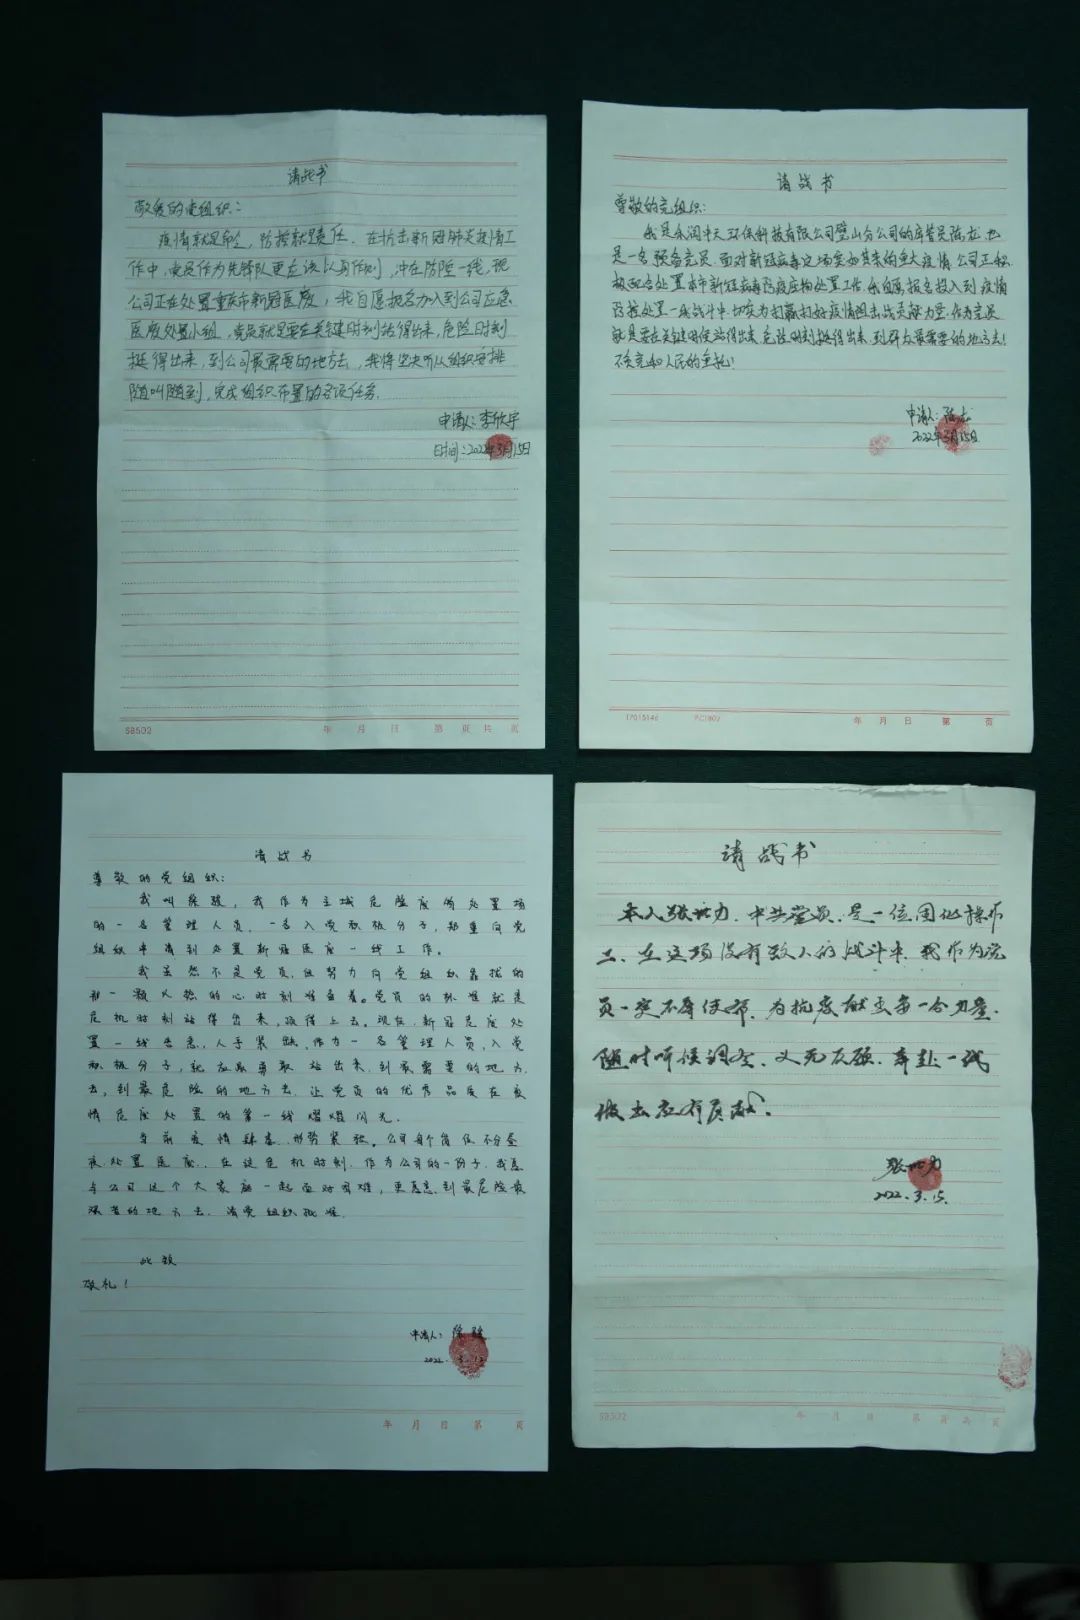 请战书
敬爱的党组织：
疫情就是命令，防控就是责任。在抗击新冠肺炎疫情工
作中，党员作为先锋队更应该以身作则，冲在防疫一线，现
公司正在处置重庆市新冠医废，我自愿报名加入到公司应急
医废处置小组，党员就是要在关键时刻站得出来，危险时刻
挺得出来，到公司最需要的地方去，我将坚决听从组织安排
随叫随到，完成组织布置的各项任务。
申请人：李欣宇
时间：2022年3月15日
SB502 年 月 日 第 页 共 页
请战书
尊敬的党组织：
我是永润中天环保科技有限公司璧山分公司的库管员陈龙，也
是一名预备党员，面对新冠病毒这场突如其来的重大疫情，公司正积
极配合处置本市新冠病毒防疫废物处置工作，我自愿报名投入到疫情
防控处置一线战斗中，切实为打赢打好疫情阻击战贡献力量，作为党员
就是要在关键时候站得出来，危险时刻挺得出来，到群众最需要的地方去！
不负党和人民的重托！
申请人：陈龙
2022年3月15日
17015146 PC1802 年 月 日 第 页
请战书
尊敬的党组织：
我叫徐骏，我作为主城危险废物处置场
的一名管理人员，一名入党积极分子，郑重向党
组织申请到处置新冠医废一线工作。
我虽然不是党员，但努力向党组织靠拢的
那一颗火热的心时刻准备着。党员的标准就是
危机时刻站得出来，顶得上去。现在，新冠医废处
置一线告急，人手紧缺，作为一名管理人员，入党
积极分子，就应该勇敢站出来，到最需要的地方
去，到最危险的地方去，让党员的优秀品质在疫
情医废处置的第一线熠熠闪光。
当前疫情肆虐，形势紧张。公司每个岗位不分昼
夜处置医废，在这危机时刻，作为公司的一份子，我愿
与公司这个大家庭一起面对困难，更愿意到最危险最
艰苦的地方去，请党组织批准。
此致
敬礼！
申请人：徐骏
2022.3.15
年 月 日 第 页
请战书
本人张世力，中共党员，是一位固化操作
工，在这场没有敌人的战斗中，我作为党
员一定不辱使命，为抗疫献出每一份力量，
随时听候调令，义无反顾，奔赴一线
做出应有贡献。
张世力
2022.3.15.
SB502 年 月 日 第 页 共 页